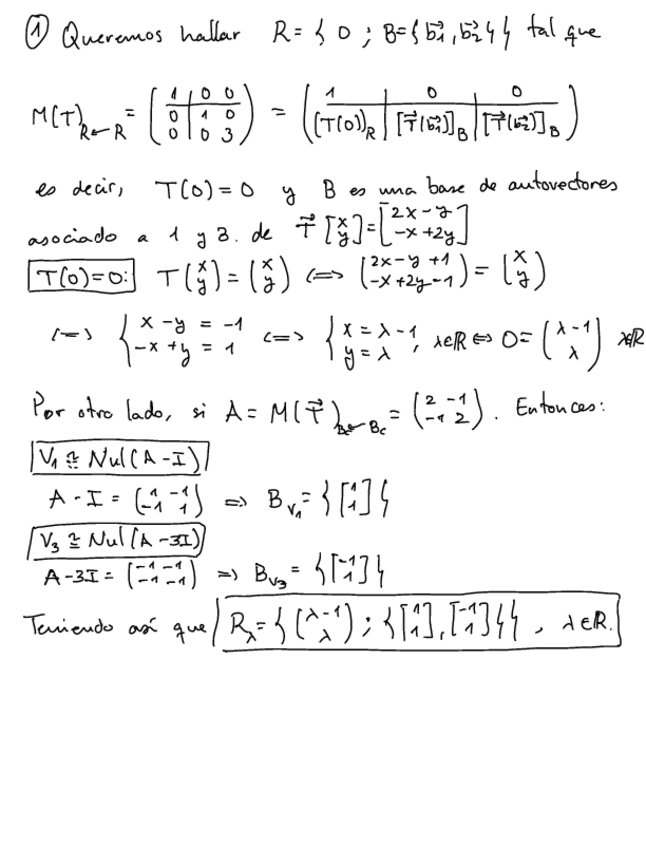 ① Queremos hallar R = { O ; B = {b⃗₁, b⃗₂} } tal que
M(T)_{R←R} = ( 1 | 0 0 ; 0 | 1 0 ; 0 | 0 3 ) = ( 1 | 0 | 0 ; (T(O))_R | [T⃗(b⃗₁)]_B | [T⃗(b⃗₂)]_B )
es decir, T(O) = O y B es una base de autovectores
asociado a 1 y 3. de T⃗ [x ; y] = [2x - y ; -x + 2y]
T(O)=O: T(x ; y) = (x ; y) <=> (2x - y + 1 ; -x + 2y - 1) = (x ; y)
<=> { x - y = -1 ; -x + y = 1 <=> { x = λ - 1 ; y = λ , λ∈ℝ <=> O = (λ - 1 ; λ) λ∈ℝ
Por otro lado, si A = M(T⃗)_{Bc←Bc} = (2 -1 ; -1 2). Entonces:
V₁ ≅ Nul(A - I)
A - I = (1 -1 ; -1 1) => B_{V₁} = { [1 ; 1] }
V₃ ≅ Nul(A - 3I)
A - 3I = (-1 -1 ; -1 -1) => B_{V₃} = { [-1 ; 1] }
Teniendo así que R_λ = { (λ - 1 ; λ) ; { [1 ; 1], [-1 ; 1] } } , λ∈ℝ.